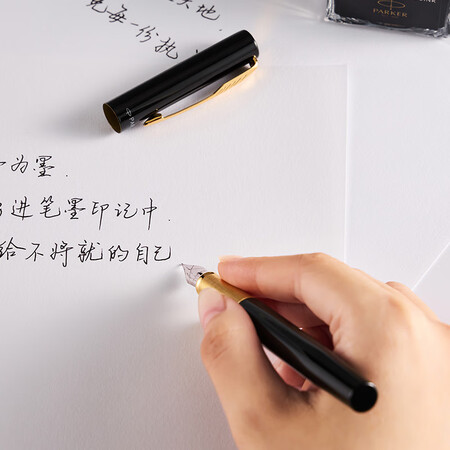 天地.
每一份执
PARKER
为墨.
进笔墨印记中.
给不将就的自己